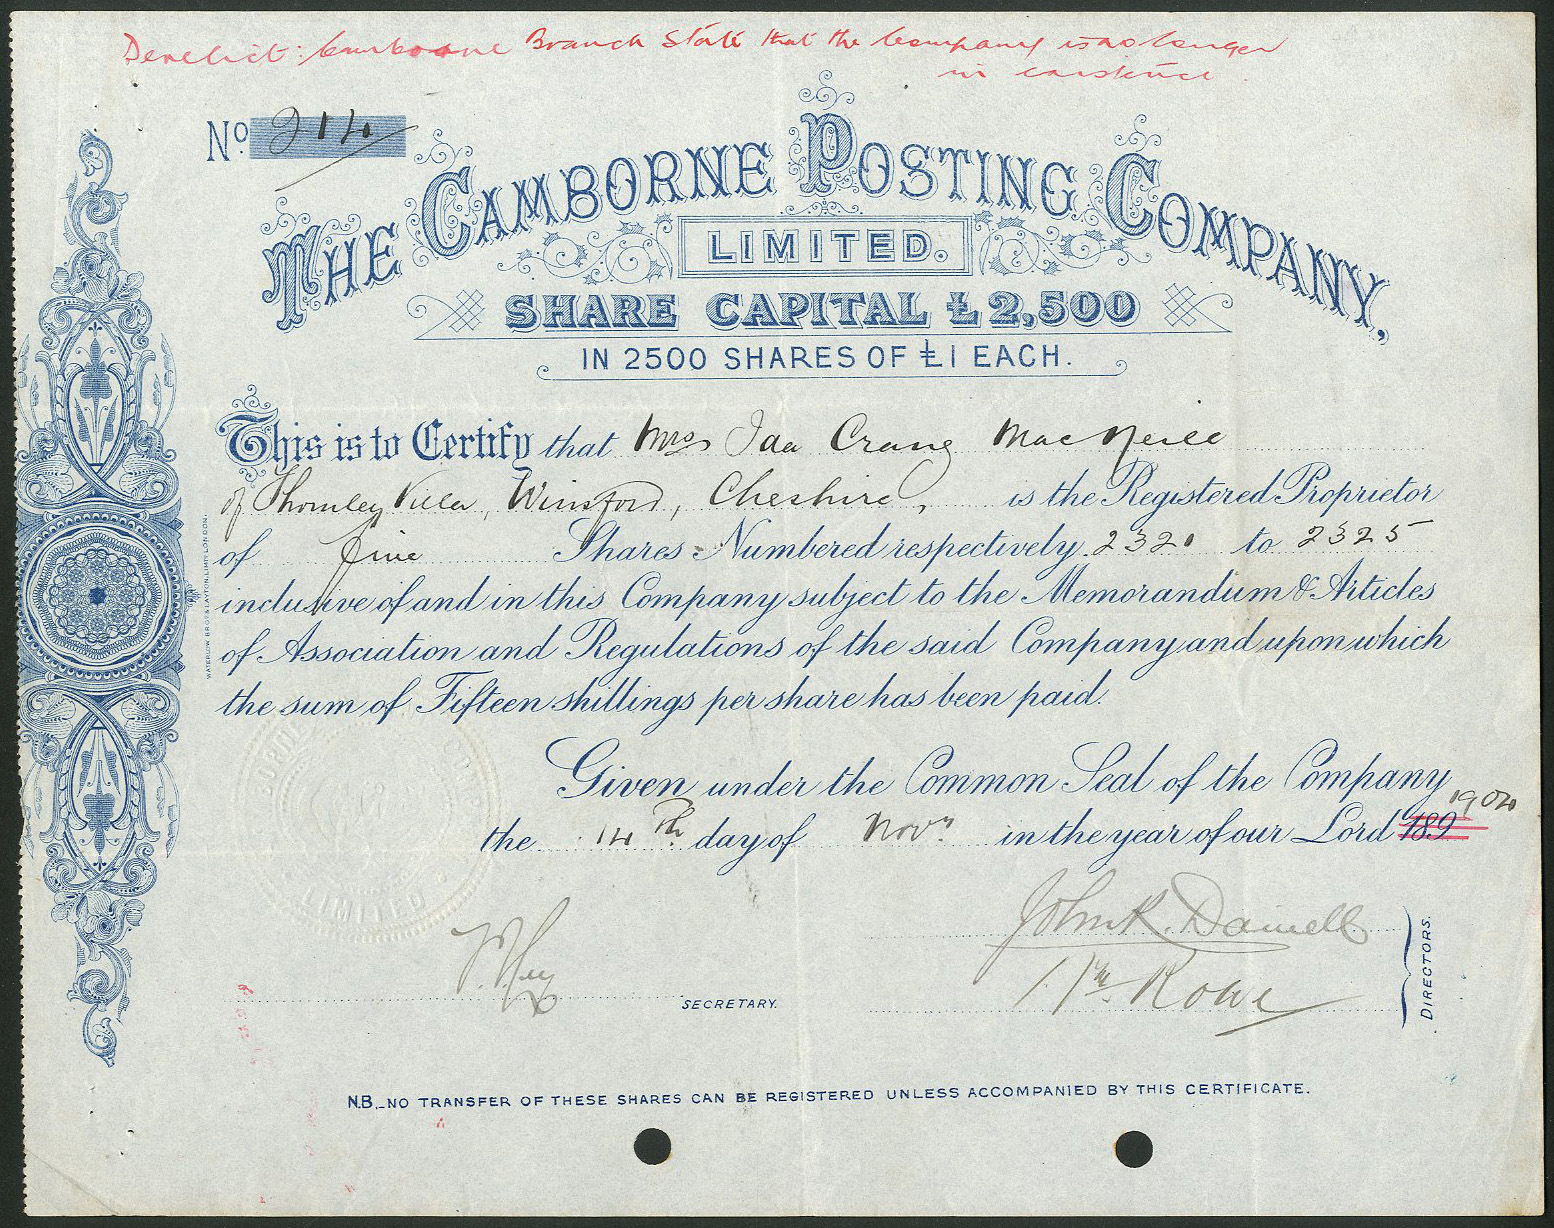 Derelict: Camborne Branch State that the Company is no longer
in existence
No. 214
THE CAMBORNE POSTING COMPANY,
LIMITED.
SHARE CAPITAL £2,500
IN 2500 SHARES OF £1 EACH.
This is to Certify that Mrs Ida Crang MacNeill
of Thornley Villa, Winsford, Cheshire, is the Registered Proprietor
of five Shares Numbered respectively 2321 to 2325
inclusive of and in this Company subject to the Memorandum & Articles
of Association and Regulations of the said Company and upon which
the sum of Fifteen shillings per share has been paid.
Given under the Common Seal of the Company
the 14th day of Novr in the year of our Lord 189 1904
LIMITED
John R. Daniell
Wm. Rowe
SECRETARY.
DIRECTORS.
N.B._NO TRANSFER OF THESE SHARES CAN BE REGISTERED UNLESS ACCOMPANIED BY THIS CERTIFICATE.
WATERLOW BROS & LAYTON, LIMD LONDON.